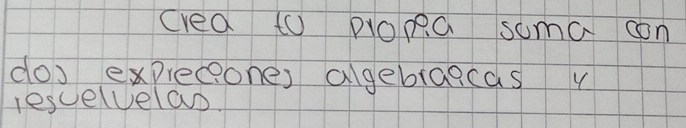 crea tu propia suma con
dos expreciones algebraicas y
resuelvelas.